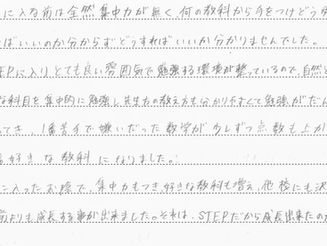 に入る前は全然集中力が無く、何の教科から手をつけどう勉
ばいいのか分からずどうすればいいか分かりませんでした。
EPに入りとても良い雰囲気で勉強する環境が整っているので、自然と
な科目を集中的に勉強し先生方の教え方も分かりやすくて勉強がだん
てき、1番苦手で嫌いだった数学が少しずつ点数も上が
好きな教科になりました。
に入ったお陰で、集中力もつき好きな教科も増え、他校にも決
前よりも成長する事が出来ました。それは、STEPだから成長出来たの